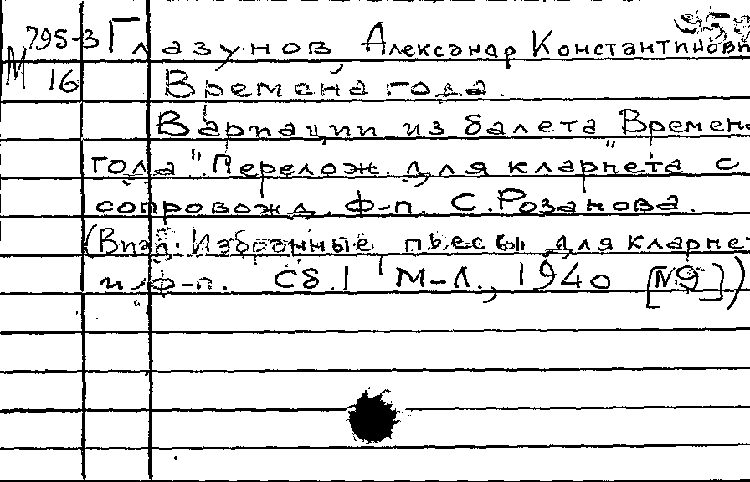 М 795-3
16
Глазунов, Александр Константинови
Времена года.
Вариации из балета "Времен
года". Перелож. для кларнета с
сопровожд. ф-п. С. Розанова.
Избранные пьесы для кларне
и ф-п. Сб. 1 М-Л., 1940 [№9])